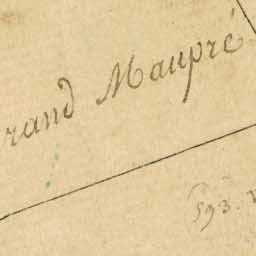 rand Maupré
593.